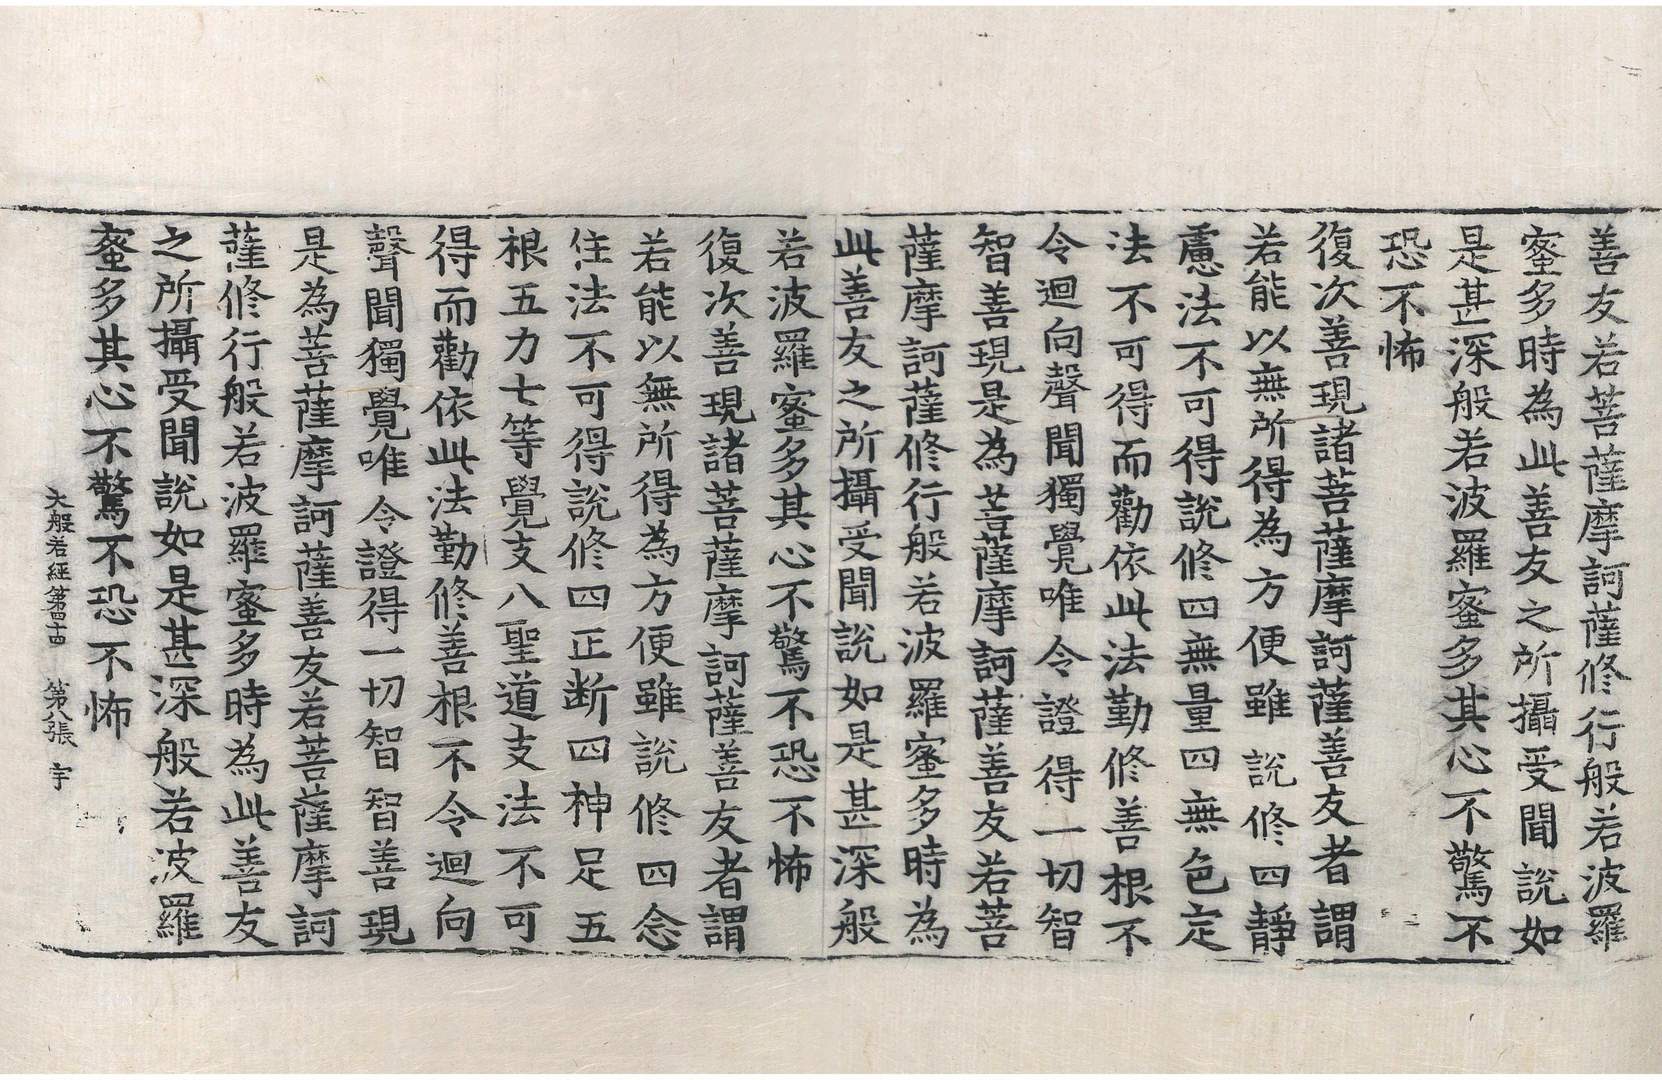 善友若菩薩摩訶薩修行般若波羅
蜜多時為此善友之所攝受聞說如
是甚深般若波羅蜜多其心不驚不
恐不怖
復次善現諸菩薩摩訶薩善友者謂
若能以無所得為方便雖說修四靜
慮法不可得說修四無量四無色定
法不可得而勸依此法勤修善根不
令迴向聲聞獨覺唯令證得一切智
智善現是為菩薩摩訶薩善友若菩
薩摩訶薩修行般若波羅蜜多時為
此善友之所攝受聞說如是甚深般
若波羅蜜多其心不驚不恐不怖
復次善現諸菩薩摩訶薩善友者謂
若能以無所得為方便雖說修四念
住法不可得說修四正断四神足五
根五力七等覺支八聖道支法不可
得而勸依此法勤修善根不令迴向
聲聞獨覺唯令證得一切智智善現
是為菩薩摩訶薩善友若菩薩摩訶
薩修行般若波羅蜜多時為此善友
之所攝受聞說如是甚深般若波羅
蜜多其心不驚不恐不怖
大般若經第四十四 第八張 宇